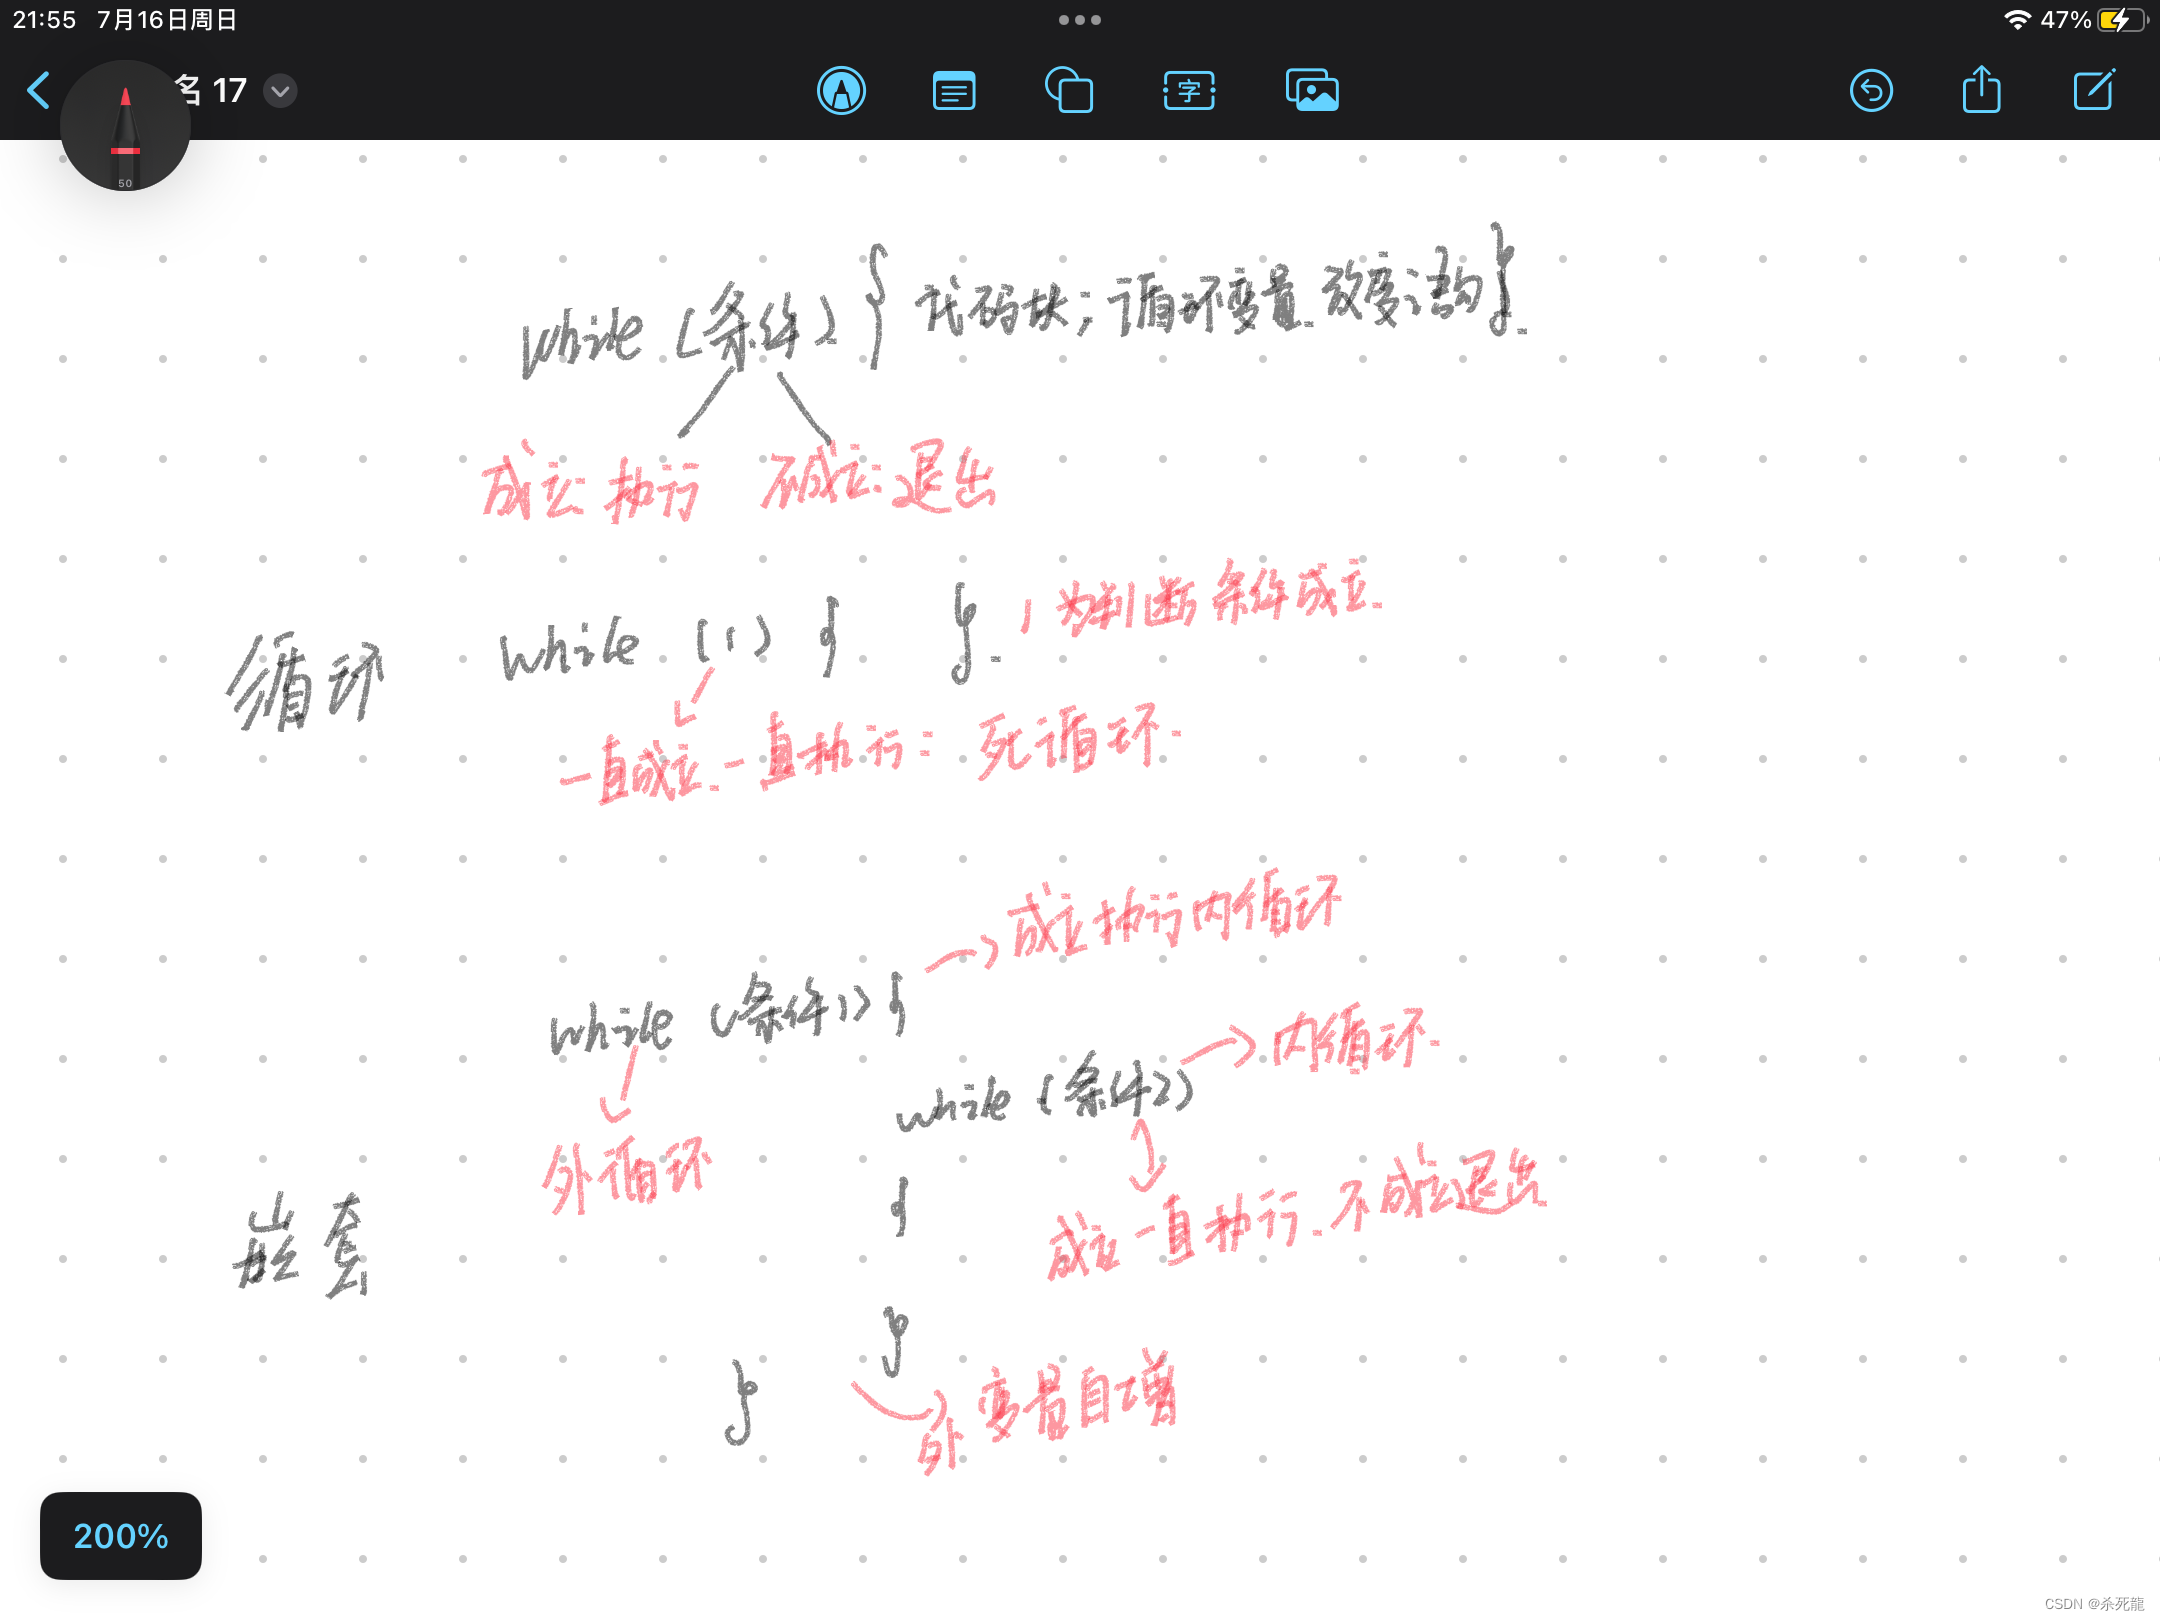 21:55 7月16日周日
47%
名 17
字
50
while (条件) { 代码块; 循环变量 改变语句 }.
成立 执行 不成立: 退出
循环 while (1) { }. 1 为判断条件成立.
一直成立. 一直执行: 死循环.
成立执行内循环
while (条件1) {
内循环.
while (条件2)
外循环
{
成立一直执行. 不成立退出
嵌套
}
}
外变量自增
200%
CSDN @杀死龍